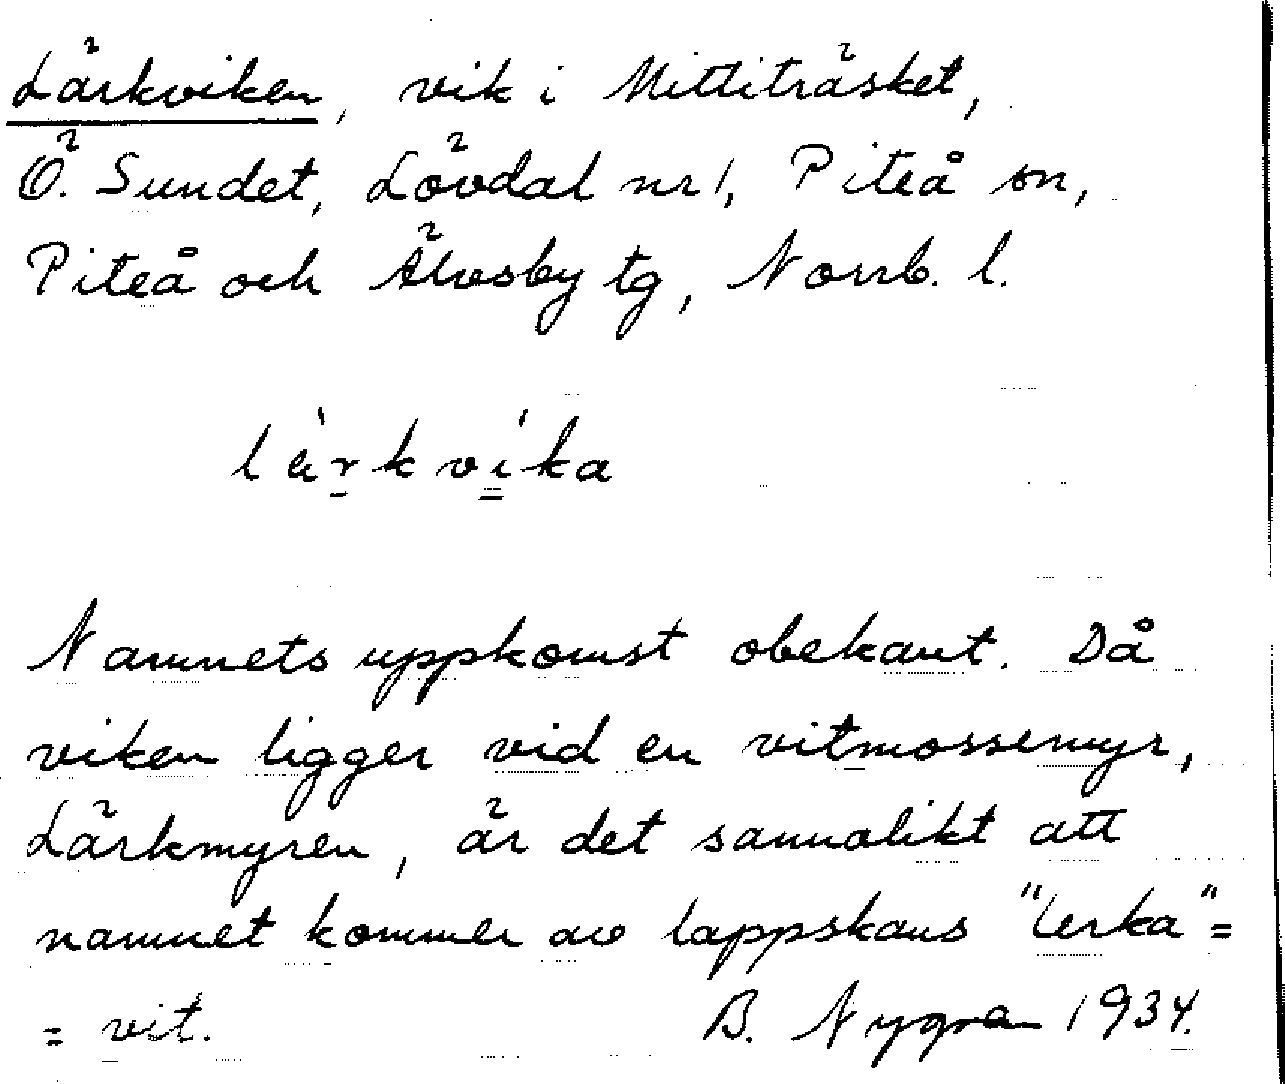 Lärkviken, vik i Mittiträsket,
Ö. Sundet, Lövdal nr 1, Piteå sn,
Piteå och Älvsby tg, Norrb. l.
lä̀rkvìka
Namnets uppkomst obekant. Då
viken ligger vid en vitmossemyr,
Lärkmyren, är det sannolikt att
namnet kommer av lappskans "lerka" =
= vit. B. Nygren 1934.